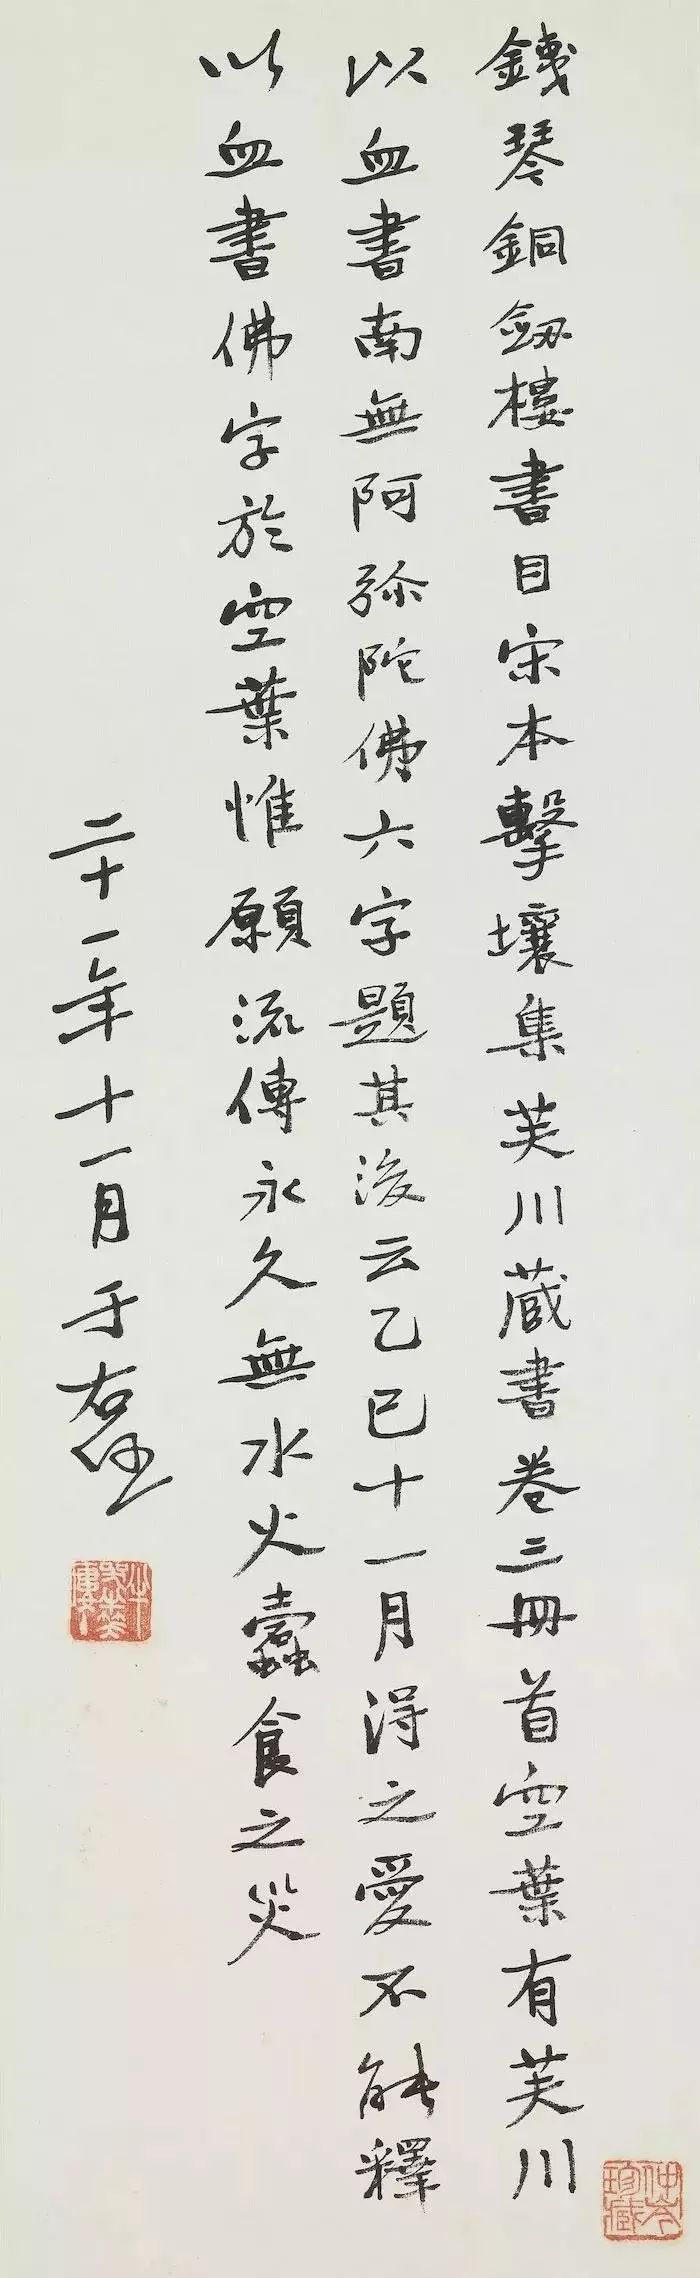 鐵琴銅劔樓書目宋本擊壤集芙川藏書卷三冊首空葉有芙川
以血書南無阿弥陀佛六字題其後云乙巳十一月得之愛不能釋
以血書佛字於空葉惟願流傳永久無水火蠹食之災
二十一年十一月于右任
仲岑珍藏